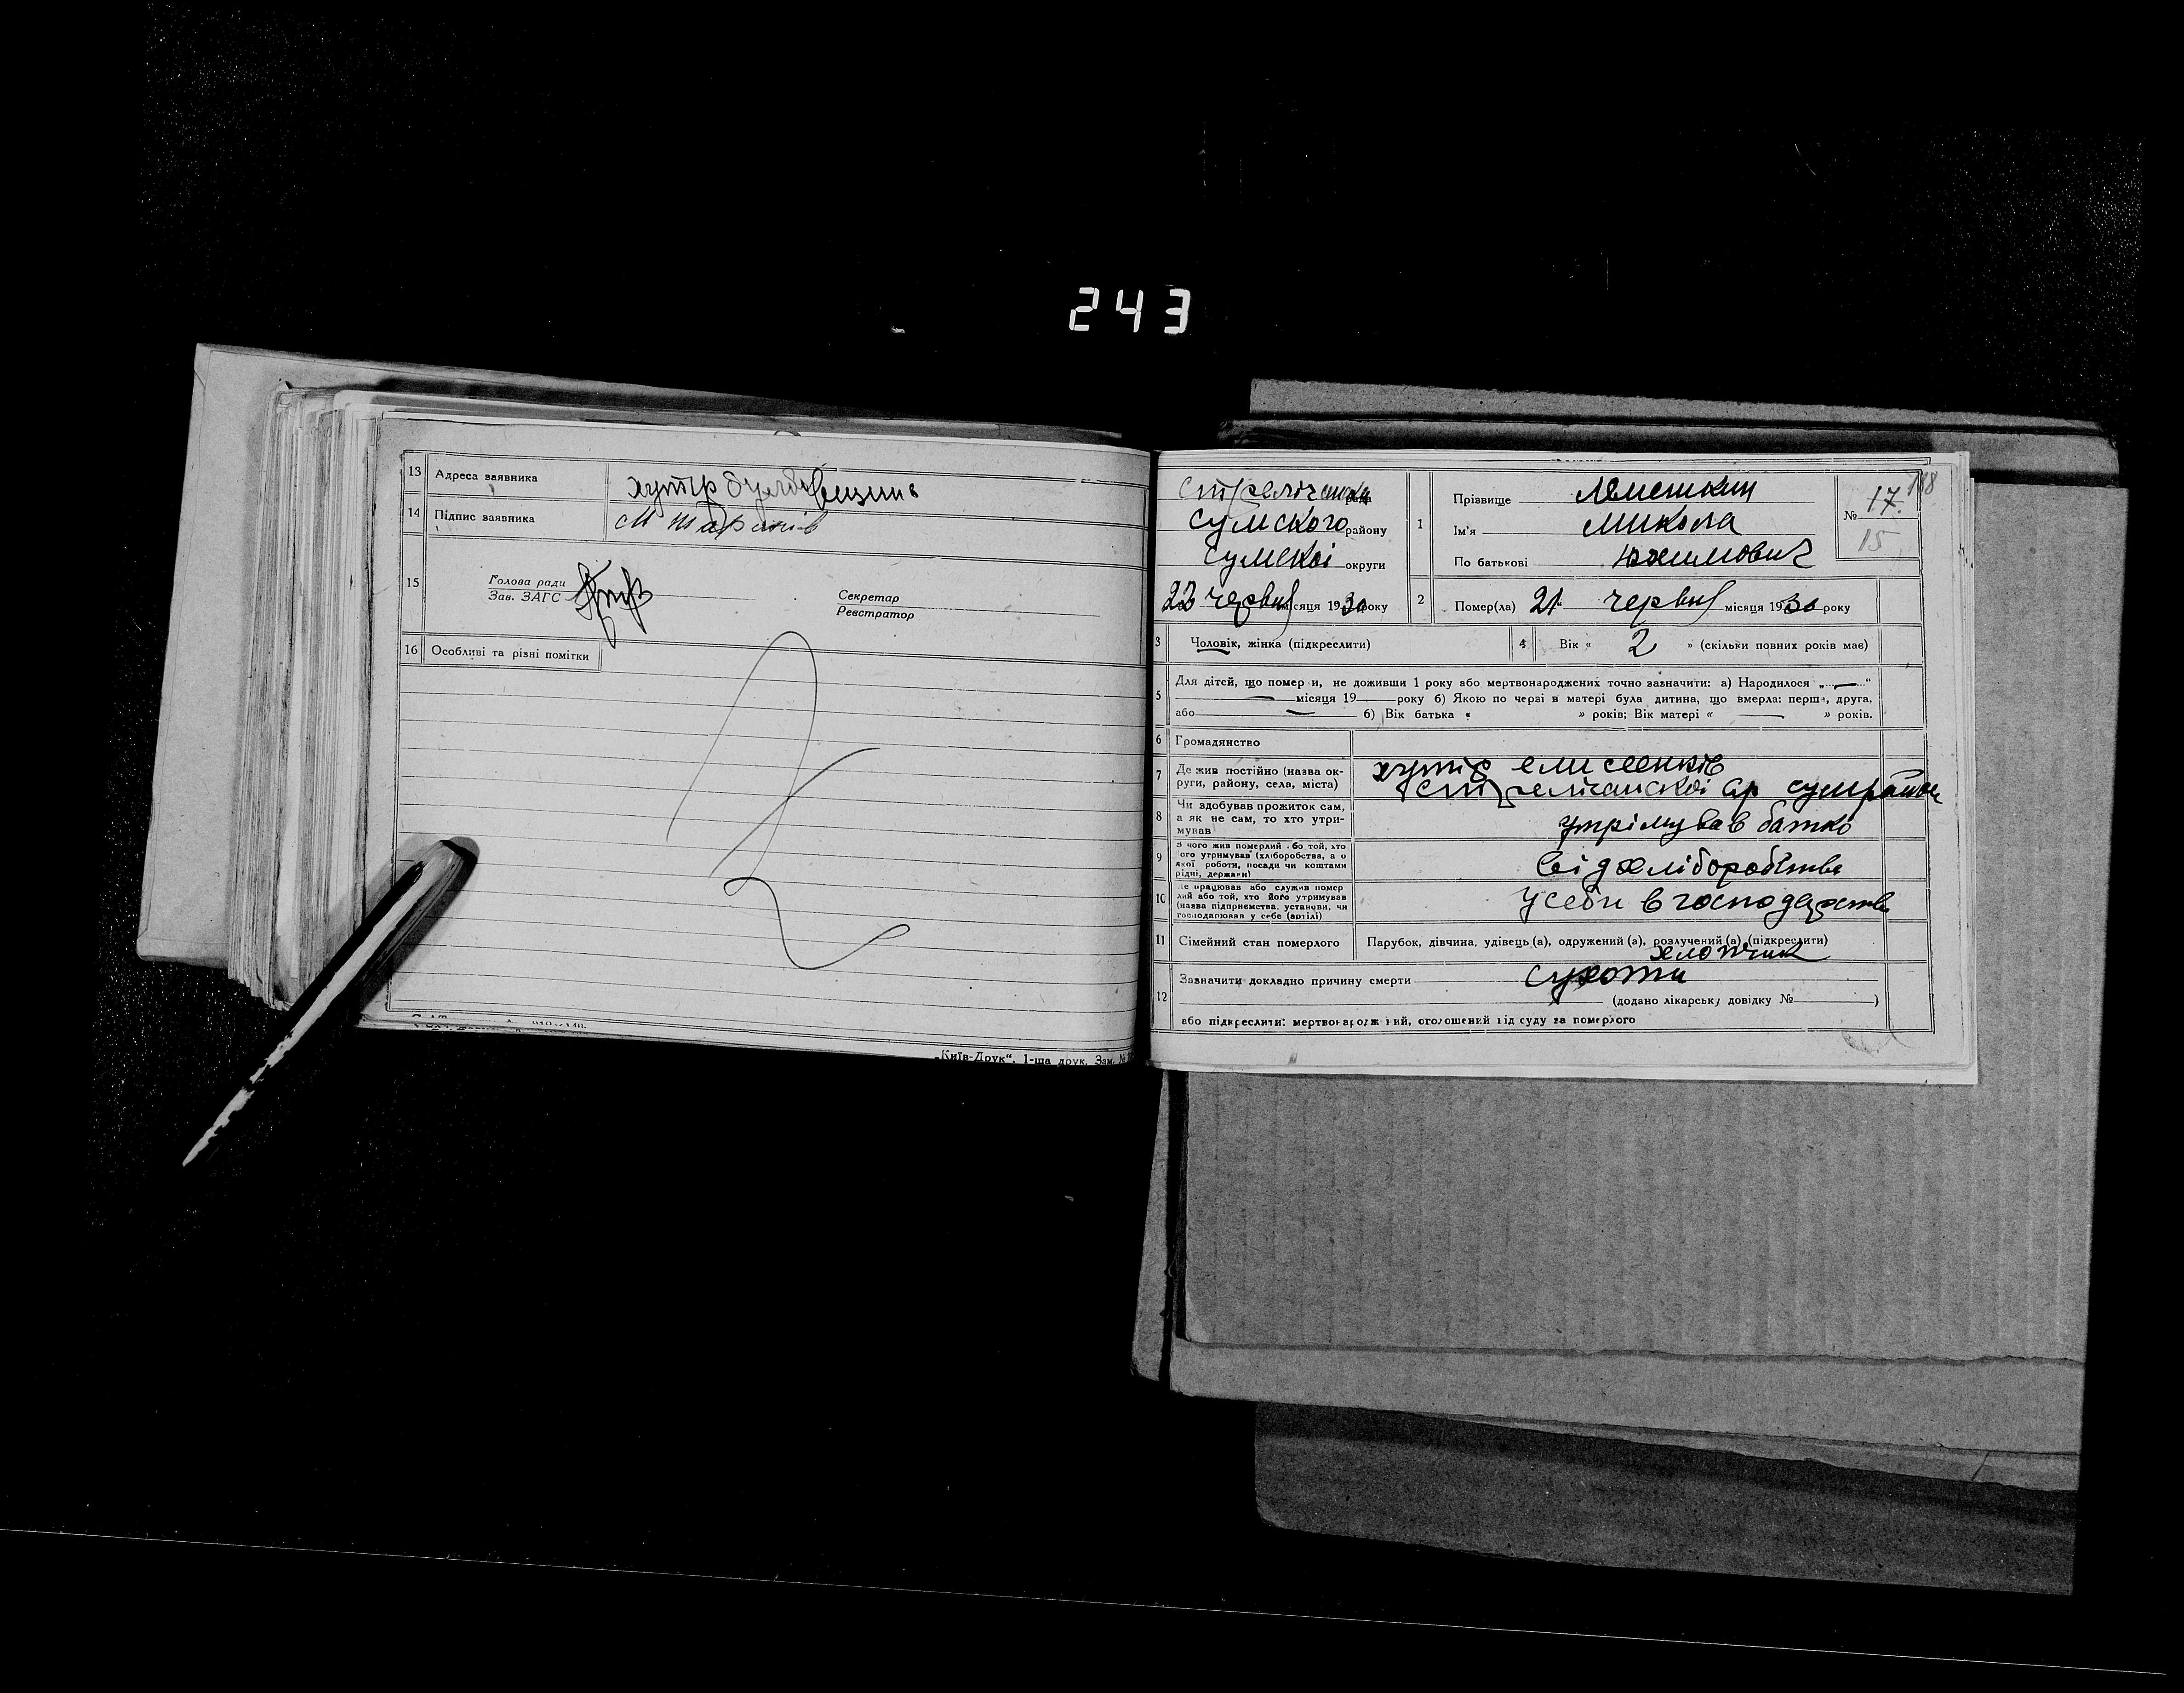 243
13 Адреса заявника хутір
14 Підпис заявника М
15 Голова ради
Зав. ЗАГС
Секретар
Реєстратор
16 Особливі та різні помітки
„Київ-Друк“, 1-ша друк. Зам. №
рада
Сумского району
Сумскої округи
місяця 1930 року
1 Прізвище
Ім'я Микола
По батькові Юхимович
№ 17.
15
2 Помер(ла) 21 місяця 1930 року
3 Чоловік, жінка (підкреслити)
4 Вік « 2 » (скільки повних років має)
5 Для дітей, що померли, не доживши 1 року або мертвонароджених точно зазначити: а) Народилося „—“
— місяця 19 — року б) Якою по черзі в матері була дитина, що вмерла: перша, друга,
або — б) Вік батька « » років; Вік матері « — » років.
6 Громадянство
7 Де жив постійно (назва ок-
руги, району, села, міста)
хутір
8 Чи здобував прожиток сам,
а як не сам, то хто утри-
мував
утрімував батько
9 З чого жив померлий або той, хто
його утримував (хліборобства, а о
якої роботи, посади чи коштами
рідні, держави)
від хліборобства
10 Де працював або служив помер
лий або той, хто його утримував
(назва підприємства, установи, чи
господарював у себе (артілі)
у себе в господарстві
11 Сімейний стан померлого Парубок, дівчина, удівець (а), одружений (а), розлучений (а) (підкреслити)
хлопчик
12 Зазначити докладно причину смерти сухоти
(додано лікарську довідку № )
або підкреслити: мертвонароджений, оголошений від суду за померлого